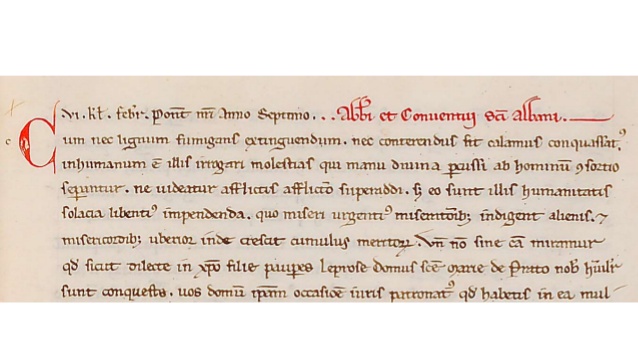 .vi. kł. febr̃. Pont̃. nr̃i Anno Septimo. . . Abb̃i et Conventui sc̃i Albani.
Cum nec lignum fumigans extinguendum. nec conterendus sit calamus conquassat᷒,
inhumanum ẽ illis irrogari molestias qui manu divina ꝑcussi ab hominũ ꝯsortio
seꝑantur. ne videatur afflictis afflictõ superaddi. sꝫ eo sunt illis humanitatis
solacia libentiꝰ impendenda. quo miseri urgentiꝰ miseritõibꝫ indigent alienis. ⁊
misericordibꝫ uberior inde crescit cumulus meritoꝝ. Uñ nõ sine cã miramur
qd̃ sicut dilecte in xp̃o filie pauꝑes leprose domus sc̃e Marie de Prato nob̃ hũilr̃
sunt conqueste. vos domũ ip̃am occasiõe iuris patronatꝰ qd̃ habetis in ea mul-